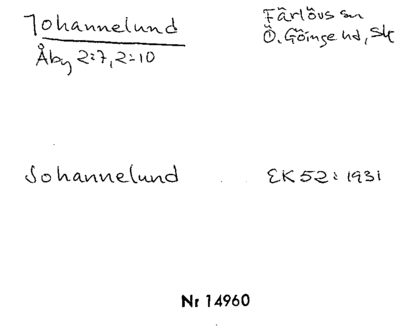 Johannelund
Färlövs sn
Åby 2:7, 2:10
Ö. Göinge hd, Sk
Johannelund
EK 52:1931
Nr 14960